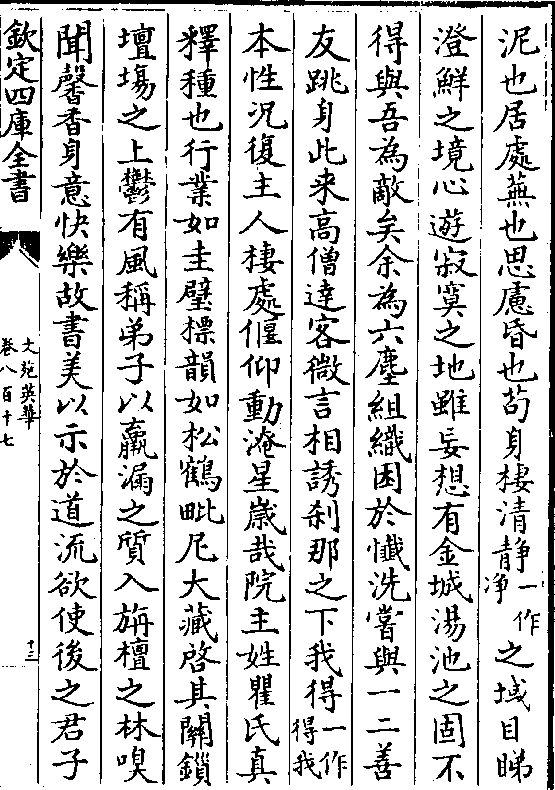 泥也居處蕪也思慮昏也茍身棲清静一作淨之域目睇
澄鮮之境心遊寂寞之地雖妄想有金城湯池之固不
得與吾為敵矣余為六塵組織困於懺洗嘗與一二善
友跳身此来高僧達客微言相誘刹那之下我得一作得我
本性况復主人棲處偃仰動淹星嵗哉院主姓瞿氏真
釋種也行業如圭璧標韻如松鶴毗尼大藏啓其關鎖
壇塲之上鬱有風稱弟子以羸漏之質入旃檀之林嗅
聞馨香身意快樂故書美以示於道流欲使後之君子
欽定四庫全書
文苑英華
卷八百十七
十三